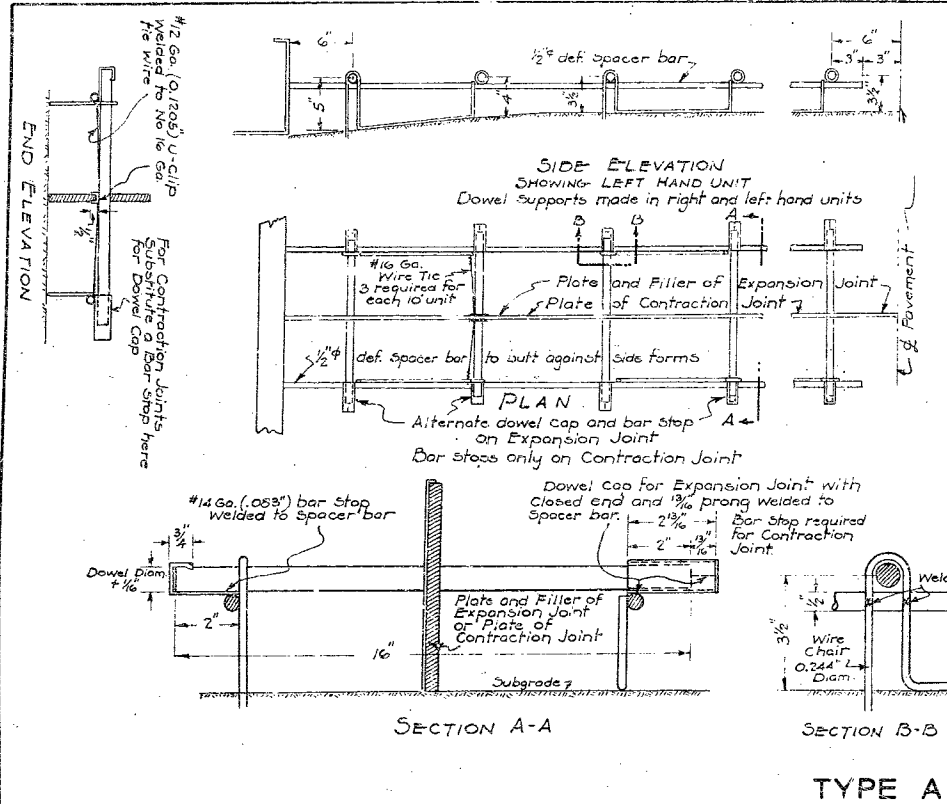 #12 Ga. (0.1205) U-Clip
welded to No 16 Ga.
tie wire
1/2"
END ELEVATION
For Contraction Joints
Substitute a Bar Stop here
for Dowel Cap
6"
5"
1/2"φ def. spacer bar
4"
3 1/2"
6"
3" 3"
3 1/2"
SIDE ELEVATION
SHOWING LEFT HAND UNIT
Dowel supports made in right and left hand units
B B A
#16 Ga.
Wire Tie
3 required for
each 10' unit
Plate and Filler of Expansion Joint
Plate of Contraction Joint
℄ Pavement
1/2"φ def. spacer bar to butt against side forms
PLAN
Alternate dowel cap and bar stop
on Expansion Joint
Bar stops only on Contraction Joint
A
#14 Ga. (.083") bar stop
welded to spacer bar
3/4"
Dowel Diam.
+ 1/16"
2"
16"
Plate and Filler of
Expansion Joint
or Plate of
Contraction Joint
Subgrade
Dowel cap for Expansion Joint with
closed end and 13/16" prong welded to
Spacer bar.
2 13/16"
2" 13/16"
Bar stop required
for Contraction
Joint.
SECTION A-A
3 1/2"
1/2"
Weld
Wire
Chair
0.244"
Diam.
SECTION B-B
TYPE A